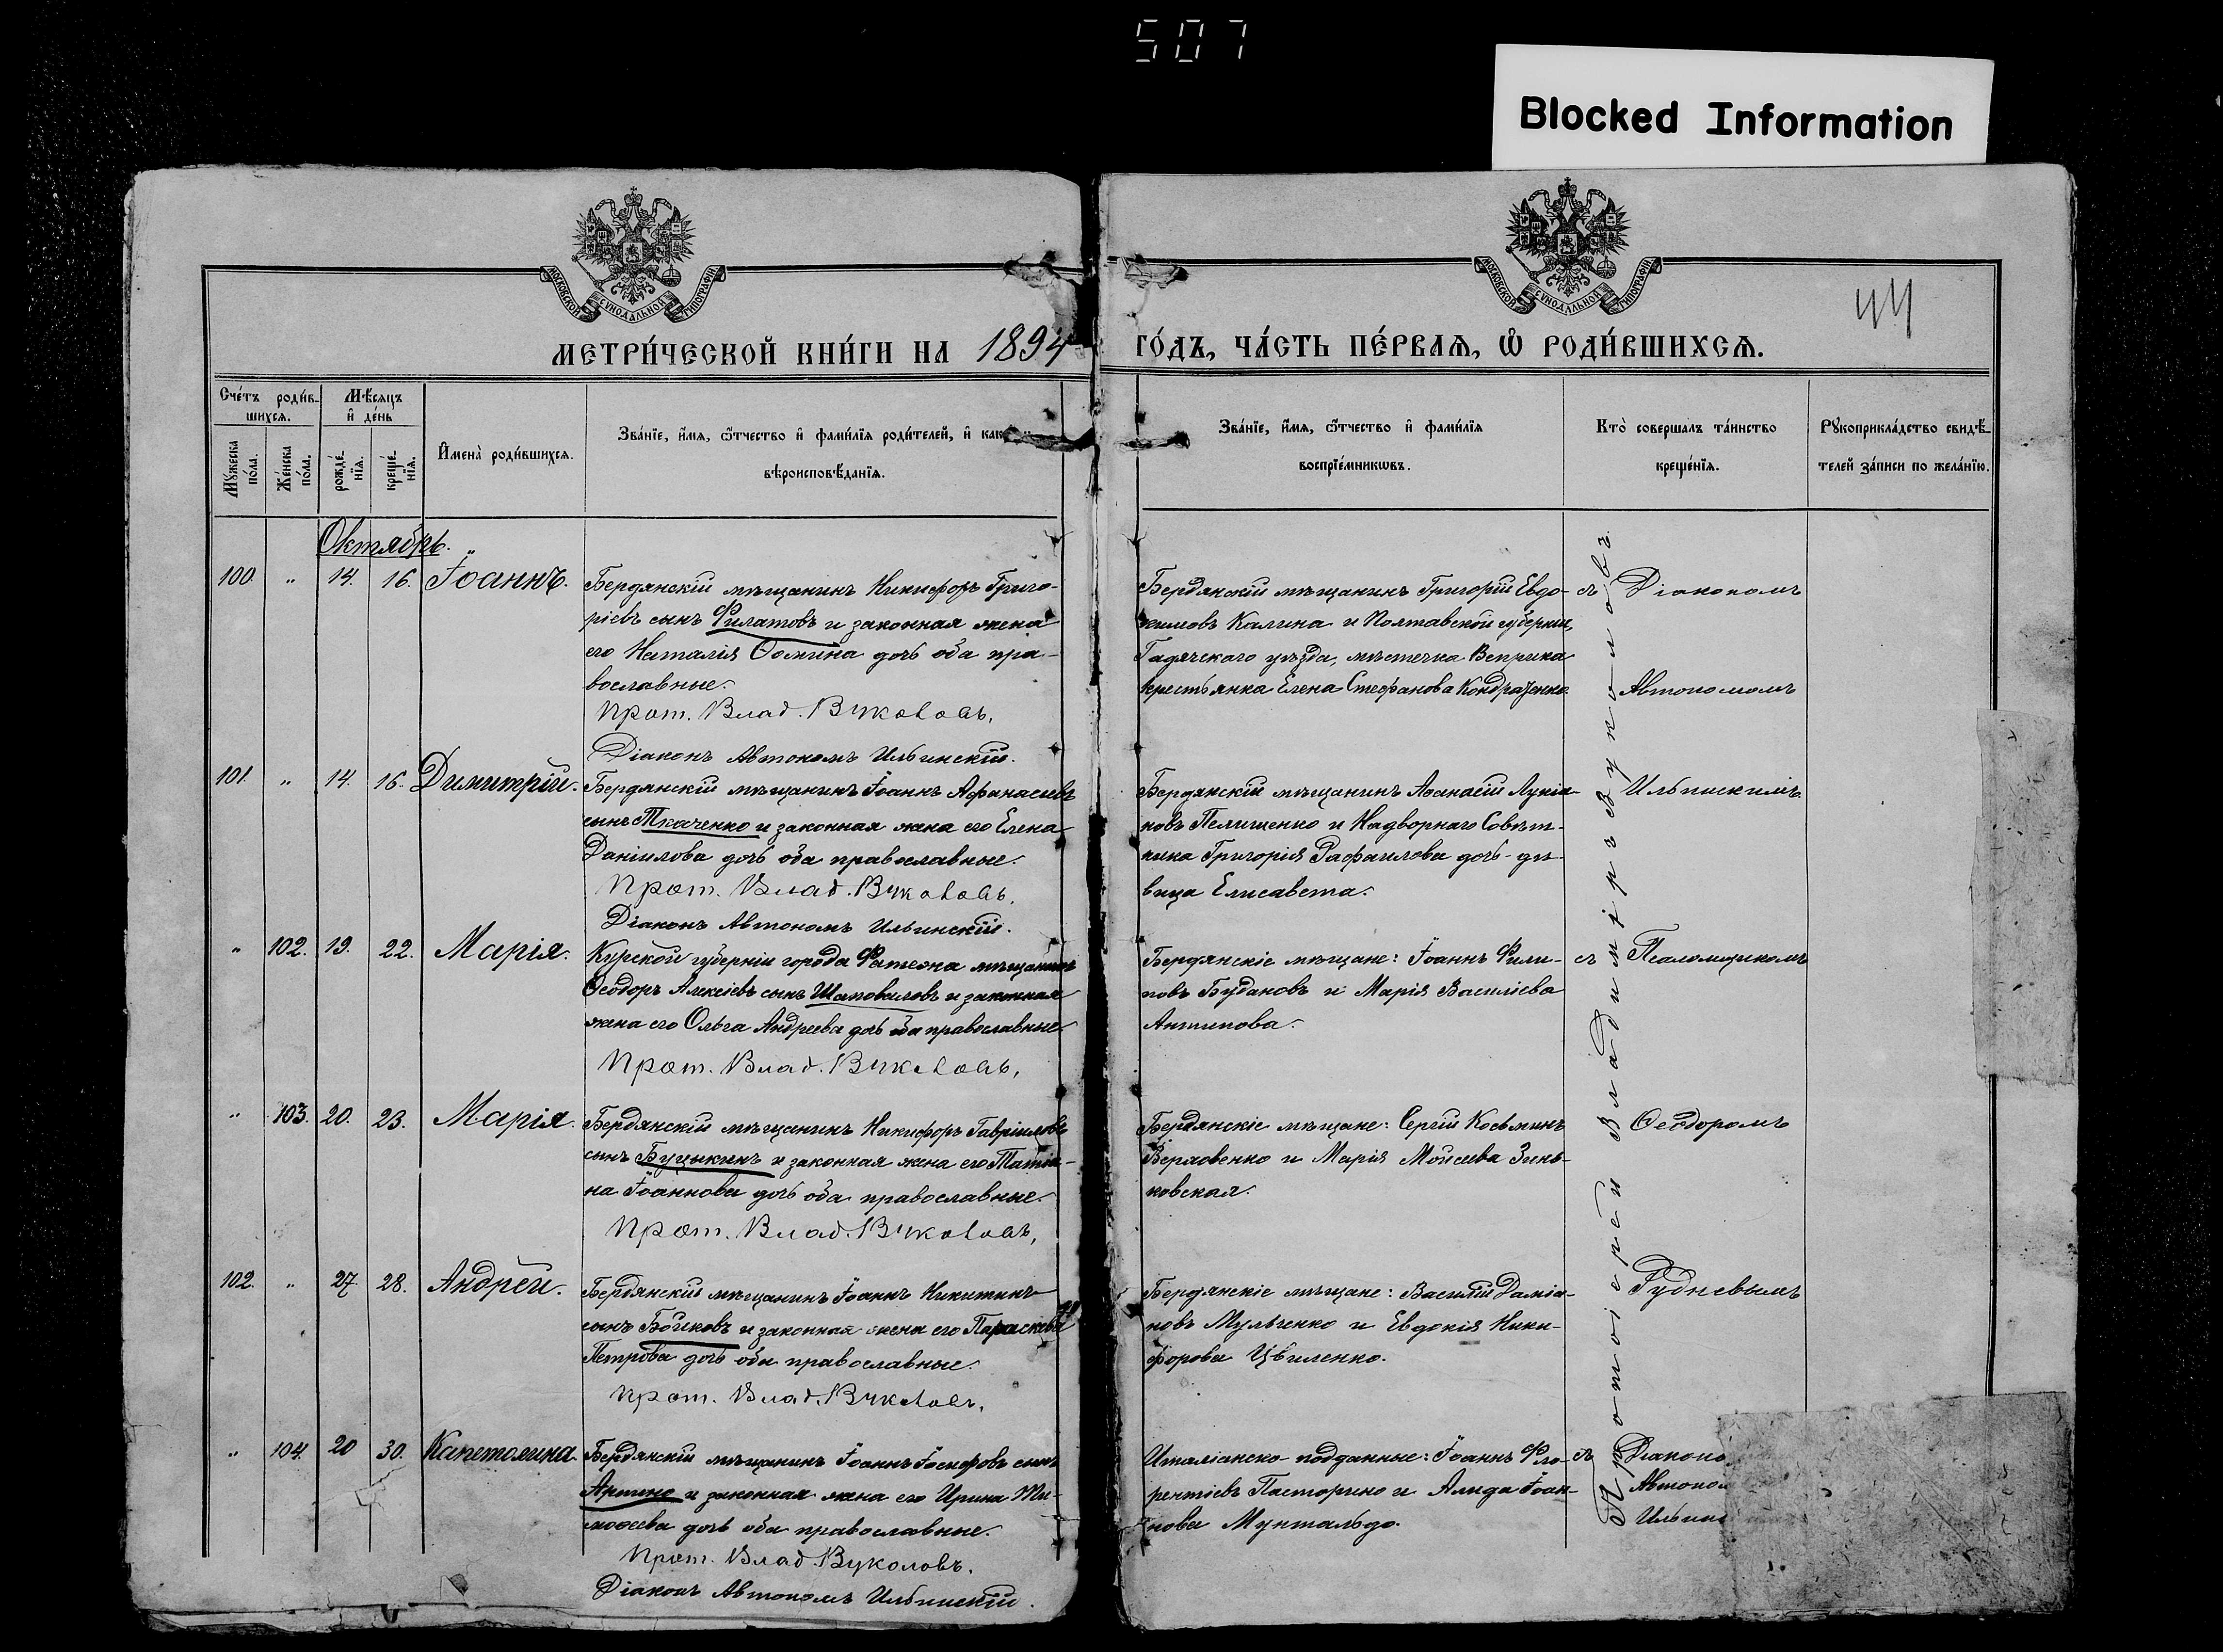 507
Blocked Information
МОСКОВСКОЙ СѴНОДАЛЬНОЙ ТИПОГРАФІИ
МОСКОВСКОЙ СѴНОДАЛЬНОЙ ТИПОГРАФІИ
44
МЕТРИ́ЧЕСКОЙ КНИ́ГИ НА 1894
ГО́ДЪ, ЧА́СТЬ ПЕ́РВАѦ, Ѽ РОДИ́ВШИХСѦ.
Сче́тъ роди́в-
шихсѧ.
Мѣ́сѧцъ
и҆ де́нь
Мꙋ́жеска по́ла.
Же́нска по́ла.
рожде́-нїѧ.
креще́-нїѧ.
И҆мена̀ роди́вшихсѧ.
Зва́нїе, и҆́мѧ, ѻ҆́тчество и҆ фами́лїѧ роди́телей, и҆ как
вѣроисповѣ́данїѧ.
Зва́нїе, и҆́мѧ, ѻ҆́тчество и҆ фами́лїѧ
воспрїе́мникѡвъ.
Кто̀ соверша́лъ та́инство
креще́нїѧ.
Рꙋкоприкла́дство свидѣ́-
телей за́писи по жела́нїю.
Октябрь.
100. " 14. 16. Іоаннъ.
Бердянскій мѣщанинъ Никифоръ Григо-
ріевъ сынъ Филатовъ и законная жена
его Наталія Ѳомина дочь оба пра-
вославные.
Прот. Влад. Вуколовъ.
Діаконъ Автономъ Ильинскій.
Бердянскій мѣщанинъ Григорій Евдо-
кимовъ Калина и Полтавской губерніи,
Гадячскаго уѣзда, мѣстечка Веприка
крестьянка Елена Стефанова Кондратенко
съ Діакономъ
Автономомъ
Ильинскимъ
Протоіерей Владиміръ Вуколовъ
101. " 14. 16. Димитрій.
Бердянскій мѣщанинъ Іоаннъ Афанасіевъ
сынъ Ткаченко и законная жена его Елена
Даніилова дочь оба православные.
Прот. Влад. Вуколовъ.
Діаконъ Автономъ Ильинскій.
Бердянскій мѣщанинъ Аѳанасій Лукіа-
новъ Пелишенко и Надворнаго Совѣт-
ника Григорія Рафаилова дочь - дѣ-
вица Елисавета.
" 102. 19. 22. Марія.
Курской губерніи города Фатежа мѣщанинъ
Ѳеодоръ Алексіевъ сынъ Шаповаловъ и законная
жена его Ольга Андреева дочь оба православные
Прот. Влад. Вуколовъ.
Бердянскіе мѣщане: Іоаннъ Фили-
повъ Будановъ и Марія Василіева
Антипова.
съ Псаломщикомъ
Ѳеодоромъ
Рудневымъ
" 103. 20. 23. Марія.
Бердянскій мѣщанинъ Никифоръ Гавріиловъ
сынъ Буцыкинъ и законная жена его Татіа-
на Іоаннова дочь оба православные.
Прот. Влад. Вуколовъ.
Бердянскіе мѣщане: Сергій Косьминъ
Верховенко и Марія Мойсеева Зинь-
ковская.
102. " 27. 28. Андрей.
Бердянскій мѣщанинъ Іоаннъ Никитинъ
сынъ Бойковъ и законная жена его Параскева
Петрова дочь оба православные.
Прот. Влад. Вуколовъ.
Бердянскіе мѣщане: Василій Даміа-
новъ Мульченко и Евдокія Ники-
форова Цвиленко.
" 104. 20 30. Капетолина.
Бердянскій мѣщанинъ Іоаннъ Іосифовъ сынъ
и законная жена его Ирина Ти-
моѳеева дочь оба православные.
Прот. Влад. Вуколовъ.
Діаконъ Автономъ Ильинскій.
Италіанско-подданные: Іоаннъ Фло-
рентіевъ Пасторино и Алида Іоан-
нова Мунтальдо.
съ Діаконо
Автоном
Ильин